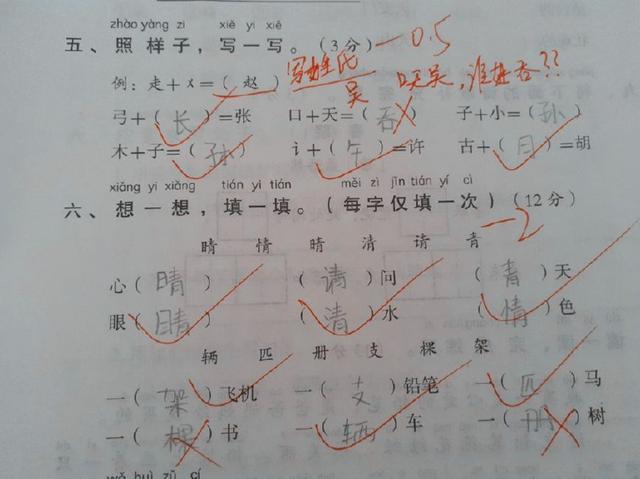 zhào yàng zi xiě yi xiě
五、照样子，写一写。(3分) -0.5
写姓氏
吴 口天吴，谁姓吞??
例：走+㐅=(赵)
弓+(长)=张 口+天=(吞) 子+小=(孙)
木+子=(孙) 讠+(午)=许 古+(月)=胡
xiǎng yi xiǎng tián yi tián měi zì jǐn tián yí cì
六、想一想，填一填。(每字仅填一次)(12分) -2
睛 情 晴 清 请 青
心(晴) (请)问 (青)天
眼(睛) (清)水 (情)色
辆 匹 册 支 棵 架
一(架)飞机 一(支)铅笔 一(匹)马
一(棵)书 一(辆)车 一(册)树
wǒ huì zǔ cí